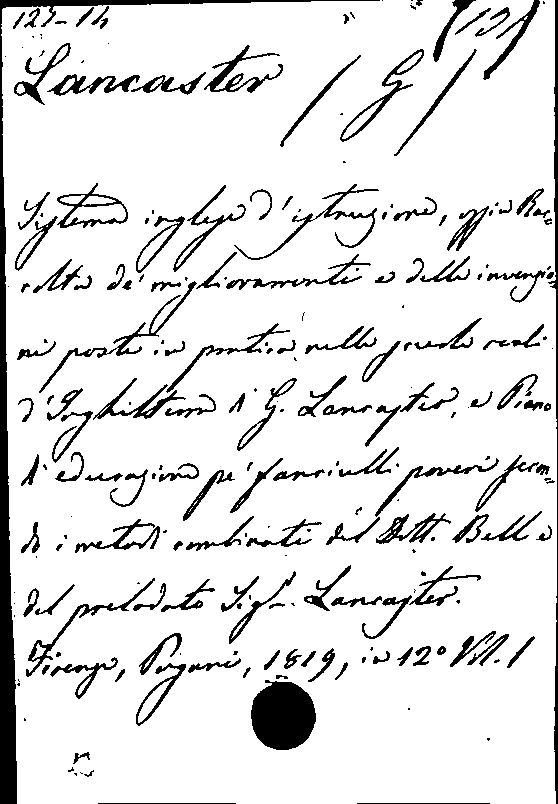 127-14
Lancaster (G)
Sistema inglese d'istruzione, ossia Rac-
colta de' miglioramenti e delle invenzio-
ni poste in pratica nelle scuole reali
d'Inghilterra di G. Lancaster, e Piano
di educazione pe' fanciulli poveri secon-
do i metodi combinati del Dott. Bell e
del prelodato Sigr. Lancaster.
Firenze, Pagani, 1819, in 12º Vol. 1